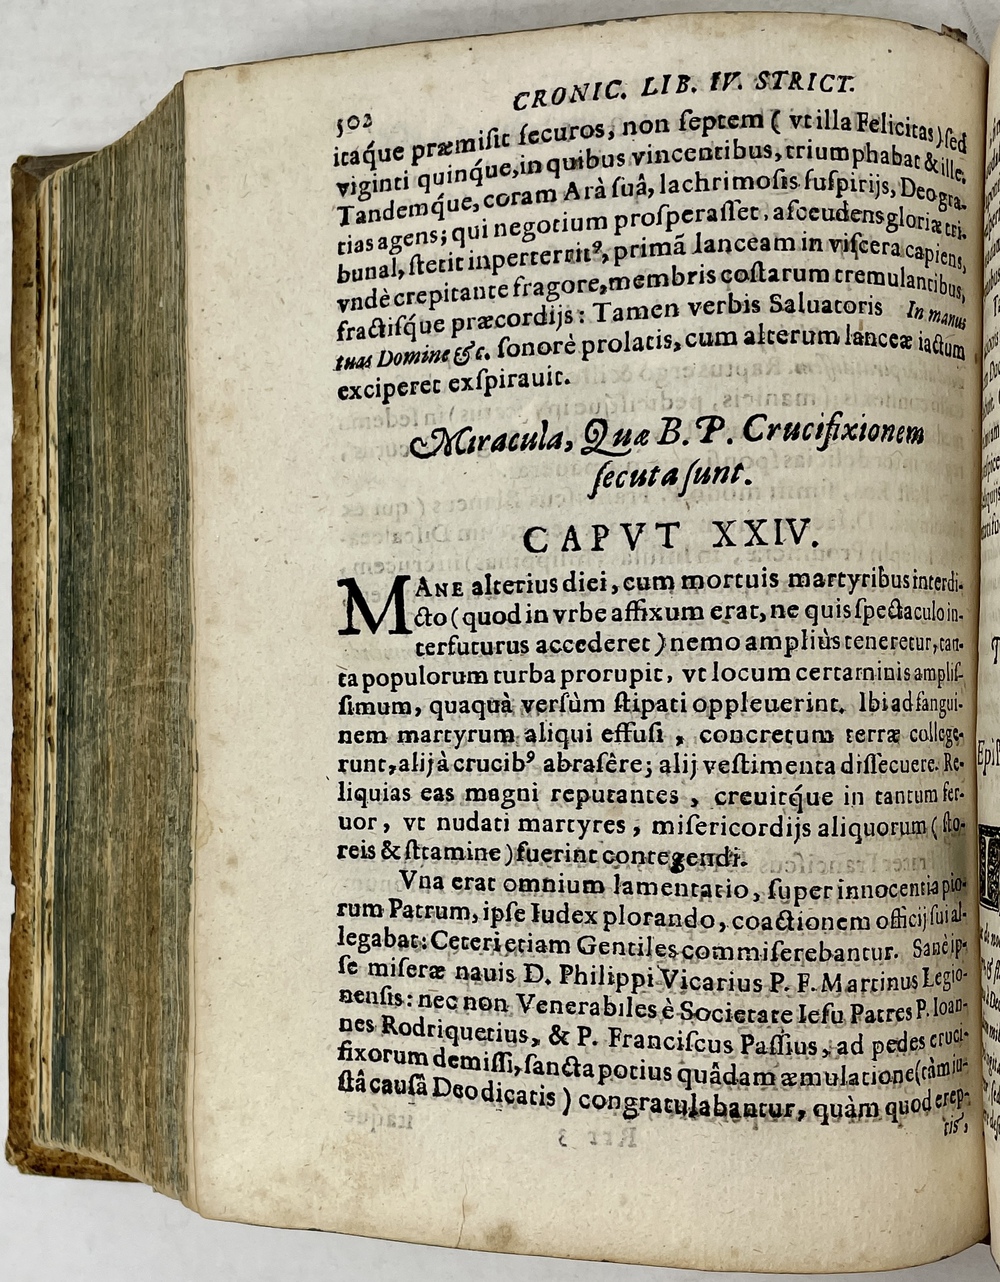 502
CRONIC. LIB. IV. STRICT.
itaq́ue præmiſit ſecuros, non ſeptem ( vt illa Felicitas ) ſed
viginti quinq́ue, in quibus vincentibus, triumphabat & ille.
Tandemq́ue, coram Arà ſuâ, lachrimoſis ſuſpirijs, Deo gra-
tias agens; qui negotium proſperaſſet, aſcendens gloriæ tri-
bunal, ſtetit inperterrit⁹, primã lanceam in viſcera capiens,
vndè crepitante fragore, membris coſtarum tremulantibus,
fractiſq́ue præcordijs: Tamen verbis Saluatoris In manus
tuas Domine &c. ſonorè prolatis, cum alterum lanceæ iactum
exciperet exſpirauit.
Miracula, Quæ B. P. Crucifixionem
ſecuta ſunt.
CAPVT XXIV.
MANE alterius diei, cum mortuis martyribus interdi-
cto ( quod in vrbe affixum erat, ne quis ſpectaculo in-
terfuturus accederet ) nemo ampliùs teneretur, tan-
ta populorum turba prorupit, vt locum certaminis ampliſ-
ſimum, quaquà verſùm ſtipati oppleuerint. Ibi ad ſangui-
nem martyrum aliqui effuſi , concretum terræ college-
runt, alij à crucib⁹ abraſêre; alij veſtimenta diſſecuere. Re-
liquias eas magni reputantes , creuitq́ue in tantum fer-
uor, vt nudati martyres, miſericordijs aliquorum ( ſto-
reis & ſtramine ) fuerint contegendi.
Vna erat omnium lamentatio, ſuper innocentia pio-
rum Patrum, ipſe Iudex plorando, coactionem officij ſui al-
legabat: Ceteri etiam Gentiles commiſerebantur. Sanè ip-
ſe miſeræ nauis D. Philippi Vicarius P. F. Martinus Legio-
nenſis: nec non Venerabiles è Societate Ieſu Patres P. Ioan-
nes Rodriquetius, & P. Franciſcus Paſſius, ad pedes cruci-
fixorum demiſſi, ſancta potius quâdam æmulatione (tàm iu-
ſtâ causâ Deo dicatis ) congratulabantur, quàm quod erep-
tis,